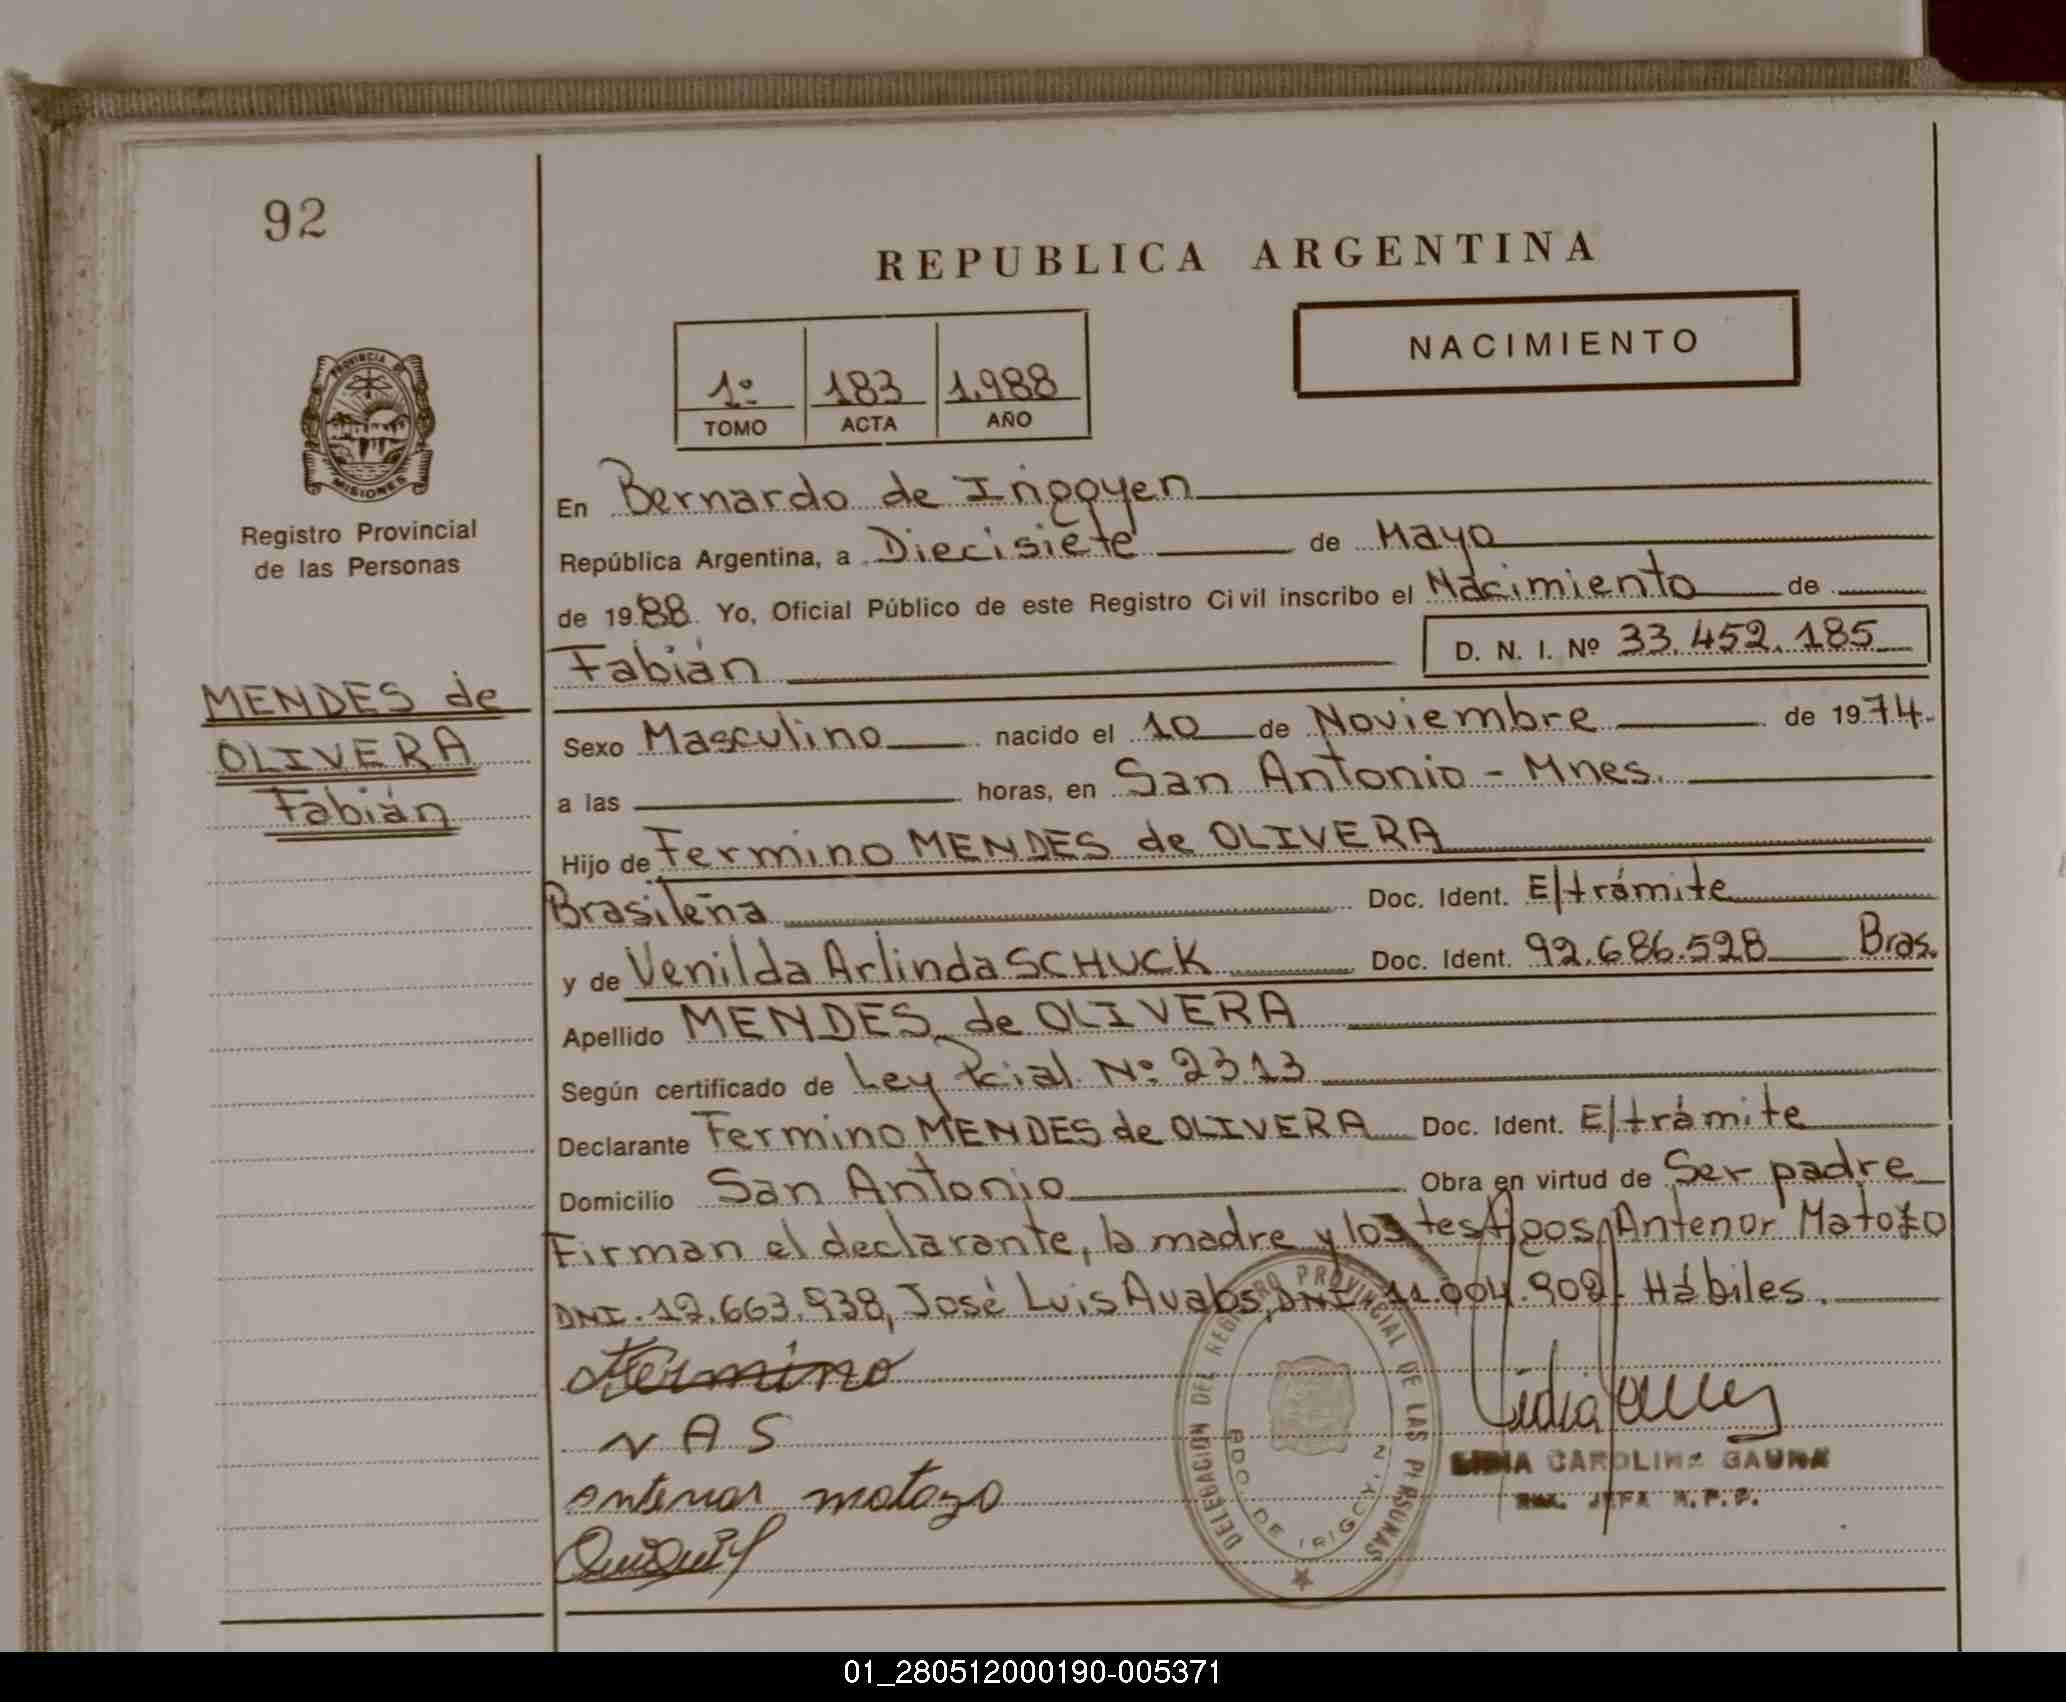 92
REPUBLICA ARGENTINA
NACIMIENTO
1º 183 1.988
TOMO ACTA AÑO
PROVINCIA DE
MISIONES
Registro Provincial
de las Personas
MENDES de
OLIVERA
Fabián
En Bernardo de Irigoyen
República Argentina, a Diecisiete de Mayo
de 1988. Yo, Oficial Público de este Registro Civil inscribo el Nacimiento de
Fabián D. N. I. Nº 33.452.185
Sexo Masculino nacido el 10 de Noviembre de 1974.
a las horas, en San Antonio - Mnes.
Hijo de Fermino MENDES de OLIVERA
Brasileña Doc. Ident. E/trámite
y de Venilda Arlinda SCHUCK Doc. Ident. 92.686.528 Bras.
Apellido MENDES de OLIVERA
Según certificado de Ley Pcial. Nº 2313
Declarante Fermino MENDES de OLIVERA Doc. Ident. E/trámite
Domicilio San Antonio Obra en virtud de Ser padre
Firman el declarante, la madre y los testigos, Antenor Matozo
DNI. 12.663.938, José Luis Avabs, DNI. 11.004.902. Hábiles.
Fermino
V A S
antenor matozo
DELEGACION DEL REGISTRO PROVINCIAL DE LAS PERSONAS
BDO. DE IRIGOYEN
LIDIA CAROLINA GAUNA
JEFA R.P.P.
01_280512000190-005371